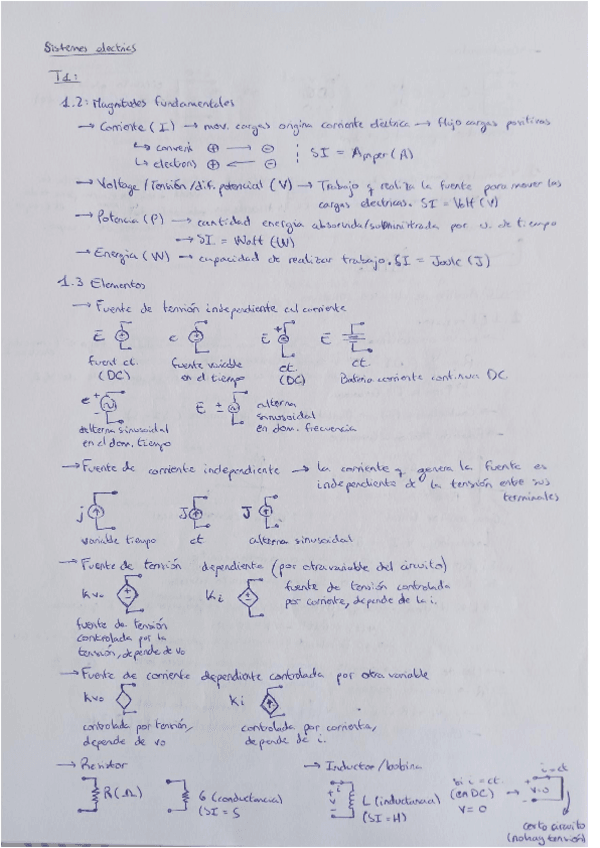 Sistemes electrics
T1:
1.2: Magnitudes fundamentales
→ Corriente (I) → mov. cargas origina corriente eléctrica → flujo cargas positivas
↳ conveni ⊕ → ⊖
↳ electrons ⊕ ← ⊖
SI = Amper (A)
→ Voltage / Tensión / dif. potencial (V) → Trabajo q realiza la fuente para mover las
cargas electricas. SI = Volt (V)
→ Potencia (P) → cantidad energia absorvida/subministrada por u. de tiempo
→ SI = Watt (W)
→ Energia (W) → capacidad de realizar trabajo. SI = Joule (J)
1.3 Elementos
→ Fuente de tensión independiente corriente
E e E E
fuent ct. fuente variable ct. ct.
(DC) en el tiempo (DC) Bateria corriente continua DC
e + - E ± alterna
sinusoidal
en dom. frecuencia
alterna sinusoidal
en el dom. tiempo
→ Fuente de corriente independiente → la corriente q genera la fuente es
independiente de la tensión entre sus
terminales
j J J
variable tiempo ct alterna sinusoidal
→ Fuente de tensión dependiente (por otra variable del circuito)
kv₀ + - Ki + - fuente de tensión controlada
por corriente, depende de la i.
fuente de tensión
controlada por la
tensión, depende de v₀
→ Fuente de corriente dependiente controlada por otra variable
kv₀ Ki
controlada por tensión, controlada por corriente,
depende de v₀ depende de i.
→ Resistor → Inductor/bobina
R (Ω) G (conductancia)
(SI = S
i + v - L (inductancia)
(SI = H)
si i = ct.
(en DC) →
V = 0
i = ct
+ v=0 -
corto circuito
(no hay tensión)